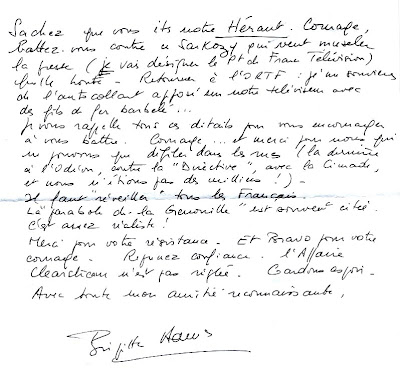 Sachez que vous êtes notre Héraut. Courage,
battez-vous contre ce Sarkozy qui veut museler
la presse (Je vais désigner le Pt de France Télévision)
Quelle honte - Retourner à l'ORTF : je me souviens
de l'autocollant apposé sur notre téléviseur avec
des fils de fer barbelé...
je vous rappelle tous ces détails pour vous encourager
à vous battre. Courage... et merci pour nous qui
ne pouvons que défiler dans les rues (la dernière
à l'Odéon, contre la "Directive", avec la Cimade,
et nous n'étions pas des milliers !) -
Il faut réveiller tous les Français.
La "parabole de la Grenouille" est souvent citée.
C'est assez réaliste !
Merci pour votre résistance. Et Bravo pour votre
courage - Reprenez confiance. l'Affaire
Clearstream n'est pas réglée. Gardons espoir -
Avec toute mon amitié reconnaissante,
Brigitte